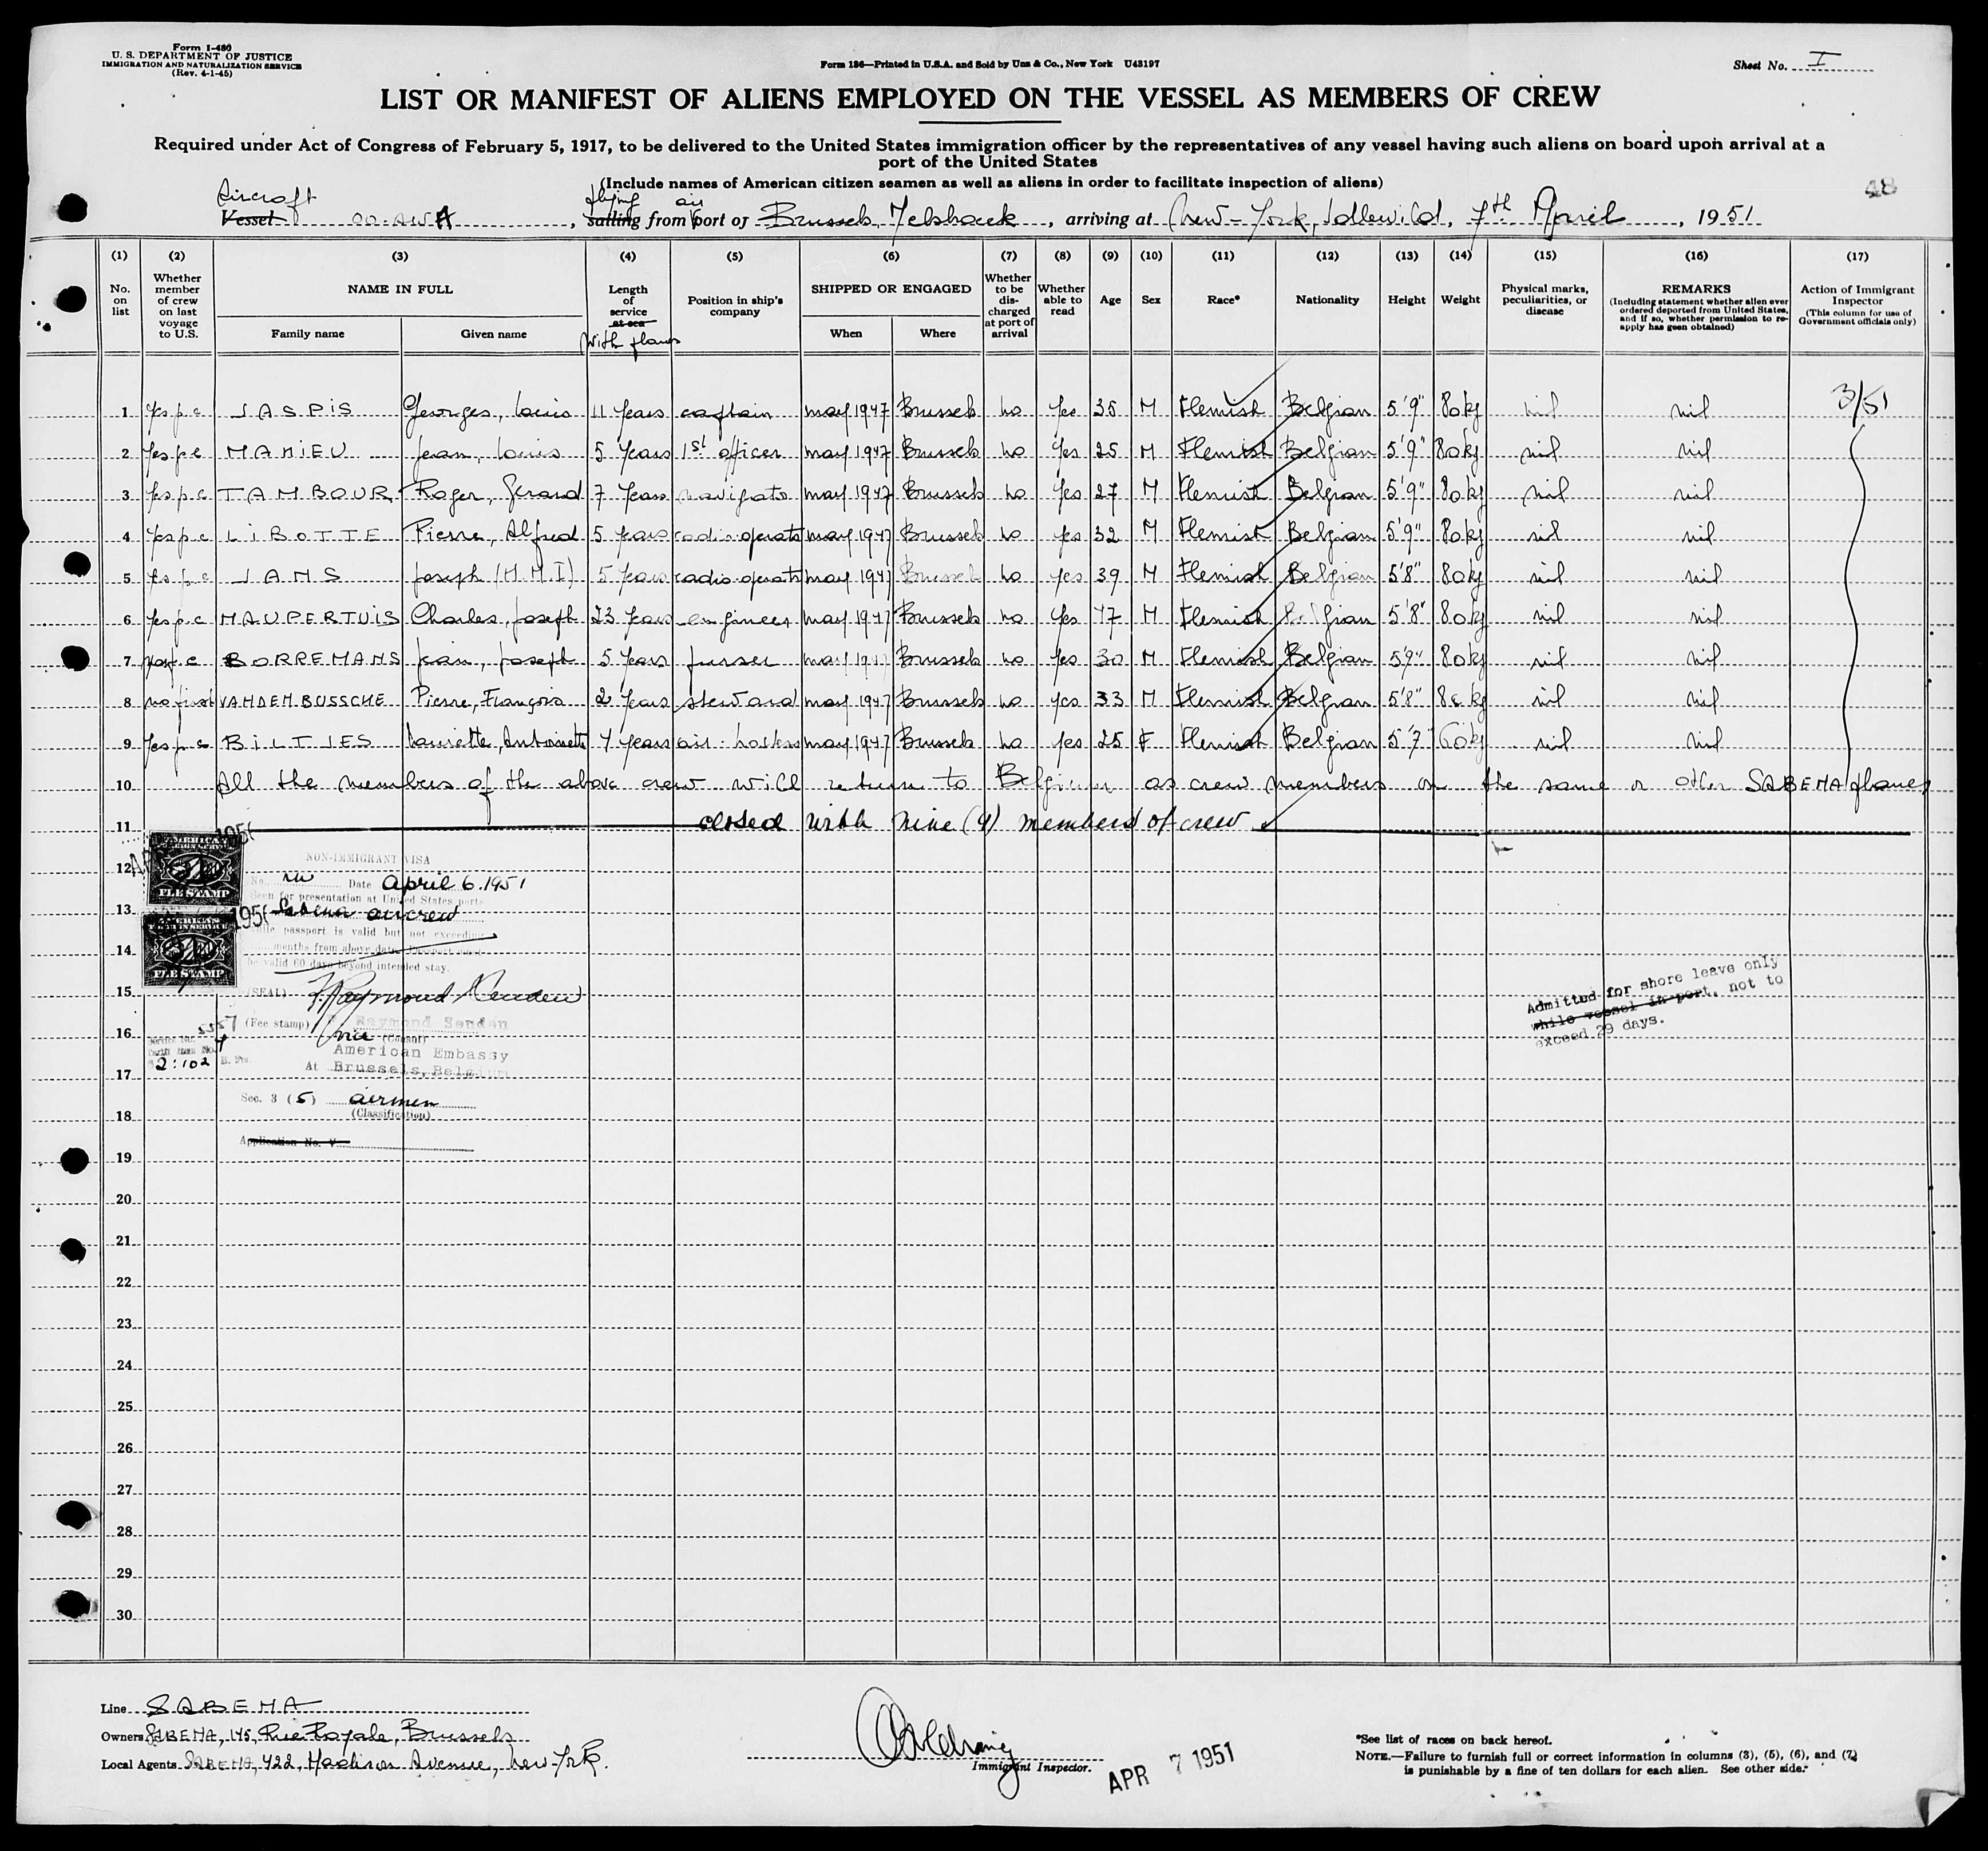 Form I-480
U. S. DEPARTMENT OF JUSTICE
IMMIGRATION AND NATURALIZATION SERVICE
(Rev. 4-1-45)
Form 186—Printed in U.S.A. and Sold by Unz & Co., New York U43197
Sheet No. I
LIST OR MANIFEST OF ALIENS EMPLOYED ON THE VESSEL AS MEMBERS OF CREW
Required under Act of Congress of February 5, 1917, to be delivered to the United States immigration officer by the representatives of any vessel having such aliens on board upon arrival at a
port of the United States
(Include names of American citizen seamen as well as aliens in order to facilitate inspection of aliens)
48
Aircraft flying air
Vessel OO-AWA, sailing from port of Brussels, Melsbroek, arriving at New-York, Idlewild, 7th April, 1951
(1) (2) (3) (4) (5) (6) (7) (8) (9) (10) (11) (12) (13) (14) (15) (16) (17)
No. on list
Whether member of crew on last voyage to U.S.
NAME IN FULL
Family name Given name
Length of service at sea
With planes
Position in ship's company
SHIPPED OR ENGAGED
When Where
Whether to be discharged at port of arrival
Whether able to read
Age
Sex
Race*
Nationality
Height
Weight
Physical marks, peculiarities, or disease
REMARKS
(Including statement whether alien ever ordered deported from United States, and if so, whether permission to reapply has been obtained)
Action of Immigrant Inspector
(This column for use of Government officials only)
3/51
1 Yes p c JASPIS Georges, Louis 11 Years captain may 1947 Brussels no Yes 35 M Flemish Belgian 5'9" 80kg nil nil
2 Yes p c MAHIEU Jean, Louis 5 Years 1st officer may 1947 Brussels no Yes 25 M Flemish Belgian 5'9" 80kg nil nil
3 Yes p c TAMBOUR Roger, Gerard 7 Years navigator may 1947 Brussels no Yes 27 M Flemish Belgian 5'9" 80kg nil nil
4 Yes p c LIBOTTE Pierre, Alfred 5 Years radio-operator may 1947 Brussels no yes 32 M Flemish Belgian 5'9" 80kg nil nil
5 Yes p c JANS Joseph (H.M.I) 5 Years radio-operator may 1947 Brussels no yes 39 M Flemish Belgian 5'8" 80kg nil nil
6 Yes p c MAUPERTUIS Charles, Joseph 23 Years engineer may 1947 Brussels no Yes 47 M Flemish Belgian 5'8" 80kg nil nil
7 Yes p c BORREMANS Jean, Joseph 5 Years purser may 1947 Brussels no Yes 30 M Flemish Belgian 5'9" 80kg nil nil
8 no first VANDENBUSSCHE Pierre, François 2 Years steward may 1947 Brussels no yes 33 M Flemish Belgian 5'8" 80 kg nil nil
9 Yes p c BILTJES Antoinette 4 Years air-hostess may 1947 Brussels no Yes 25 F Flemish Belgian 5'7" 60kg nil nil
10 All the members of the above crew will return to Belgium as crew members on the same or other SABENA planes
11 closed with nine (9) members of crew
12
13
14
15
16
17
18
19
20
21
22
23
24
25
26
27
28
29
30
AMERICAN FOREIGN SERVICE
FEE STAMP
1951
AMERICAN FOREIGN SERVICE
FEE STAMP
1951
NON-IMMIGRANT VISA
No. Date April 6. 1951
Seen for presentation at United States ports
Sabena aircrew
while passport is valid but not exceeding
months from above date. Passport must
be valid 60 days beyond intended stay.
(SEAL)
(Fee stamp) Raymond Senden
Vice (Consul)
American Embassy
At Brussels, Belgium
Service No. 5557
Tariff Item No. 4
2:102 B. Frs.
Sec. 3 (5) airmen
(Classification)
Application No. V
Admitted for shore leave only
while vessel in port, not to
exceed 29 days.
Line SABENA
Owners SABENA, 145, Rue Royale, Brussels
Local Agents SABENA, 422, Madison Avenue, New-York.
Immigrant Inspector.
APR 7 1951
*See list of races on back hereof.
NOTE.—Failure to furnish full or correct information in columns (3), (5), (6), and (7)
is punishable by a fine of ten dollars for each alien. See other side.